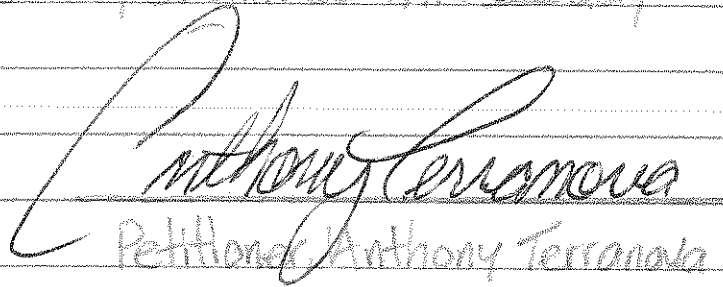 Anthony Terranova
Petitioner Anthony Terranova